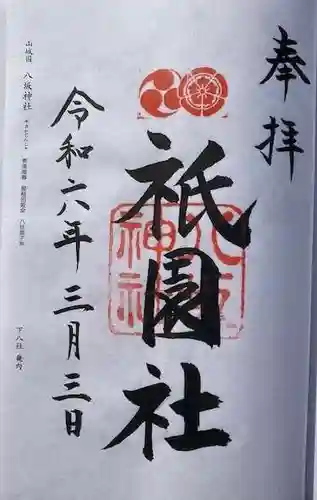 奉拝
祇園社
八坂神社
令和六年三月三日
山城国 八坂神社
下八社 畿内